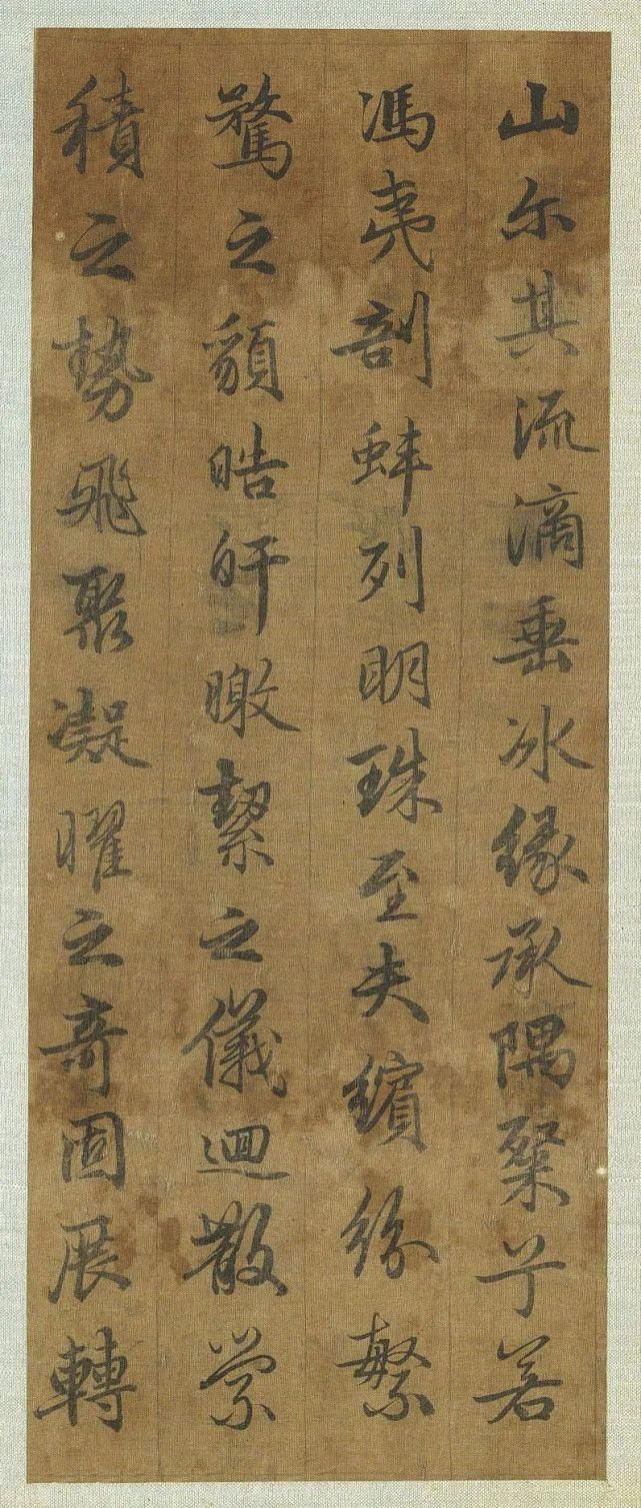 山尓其流滴垂冰縁承隅粲兮若
馮夷剖蚌列明珠至夫繽紛繁
驁之貌皓皔曒絜之儀迴散縈
積之勢飛聚凝曜之奇固展轉